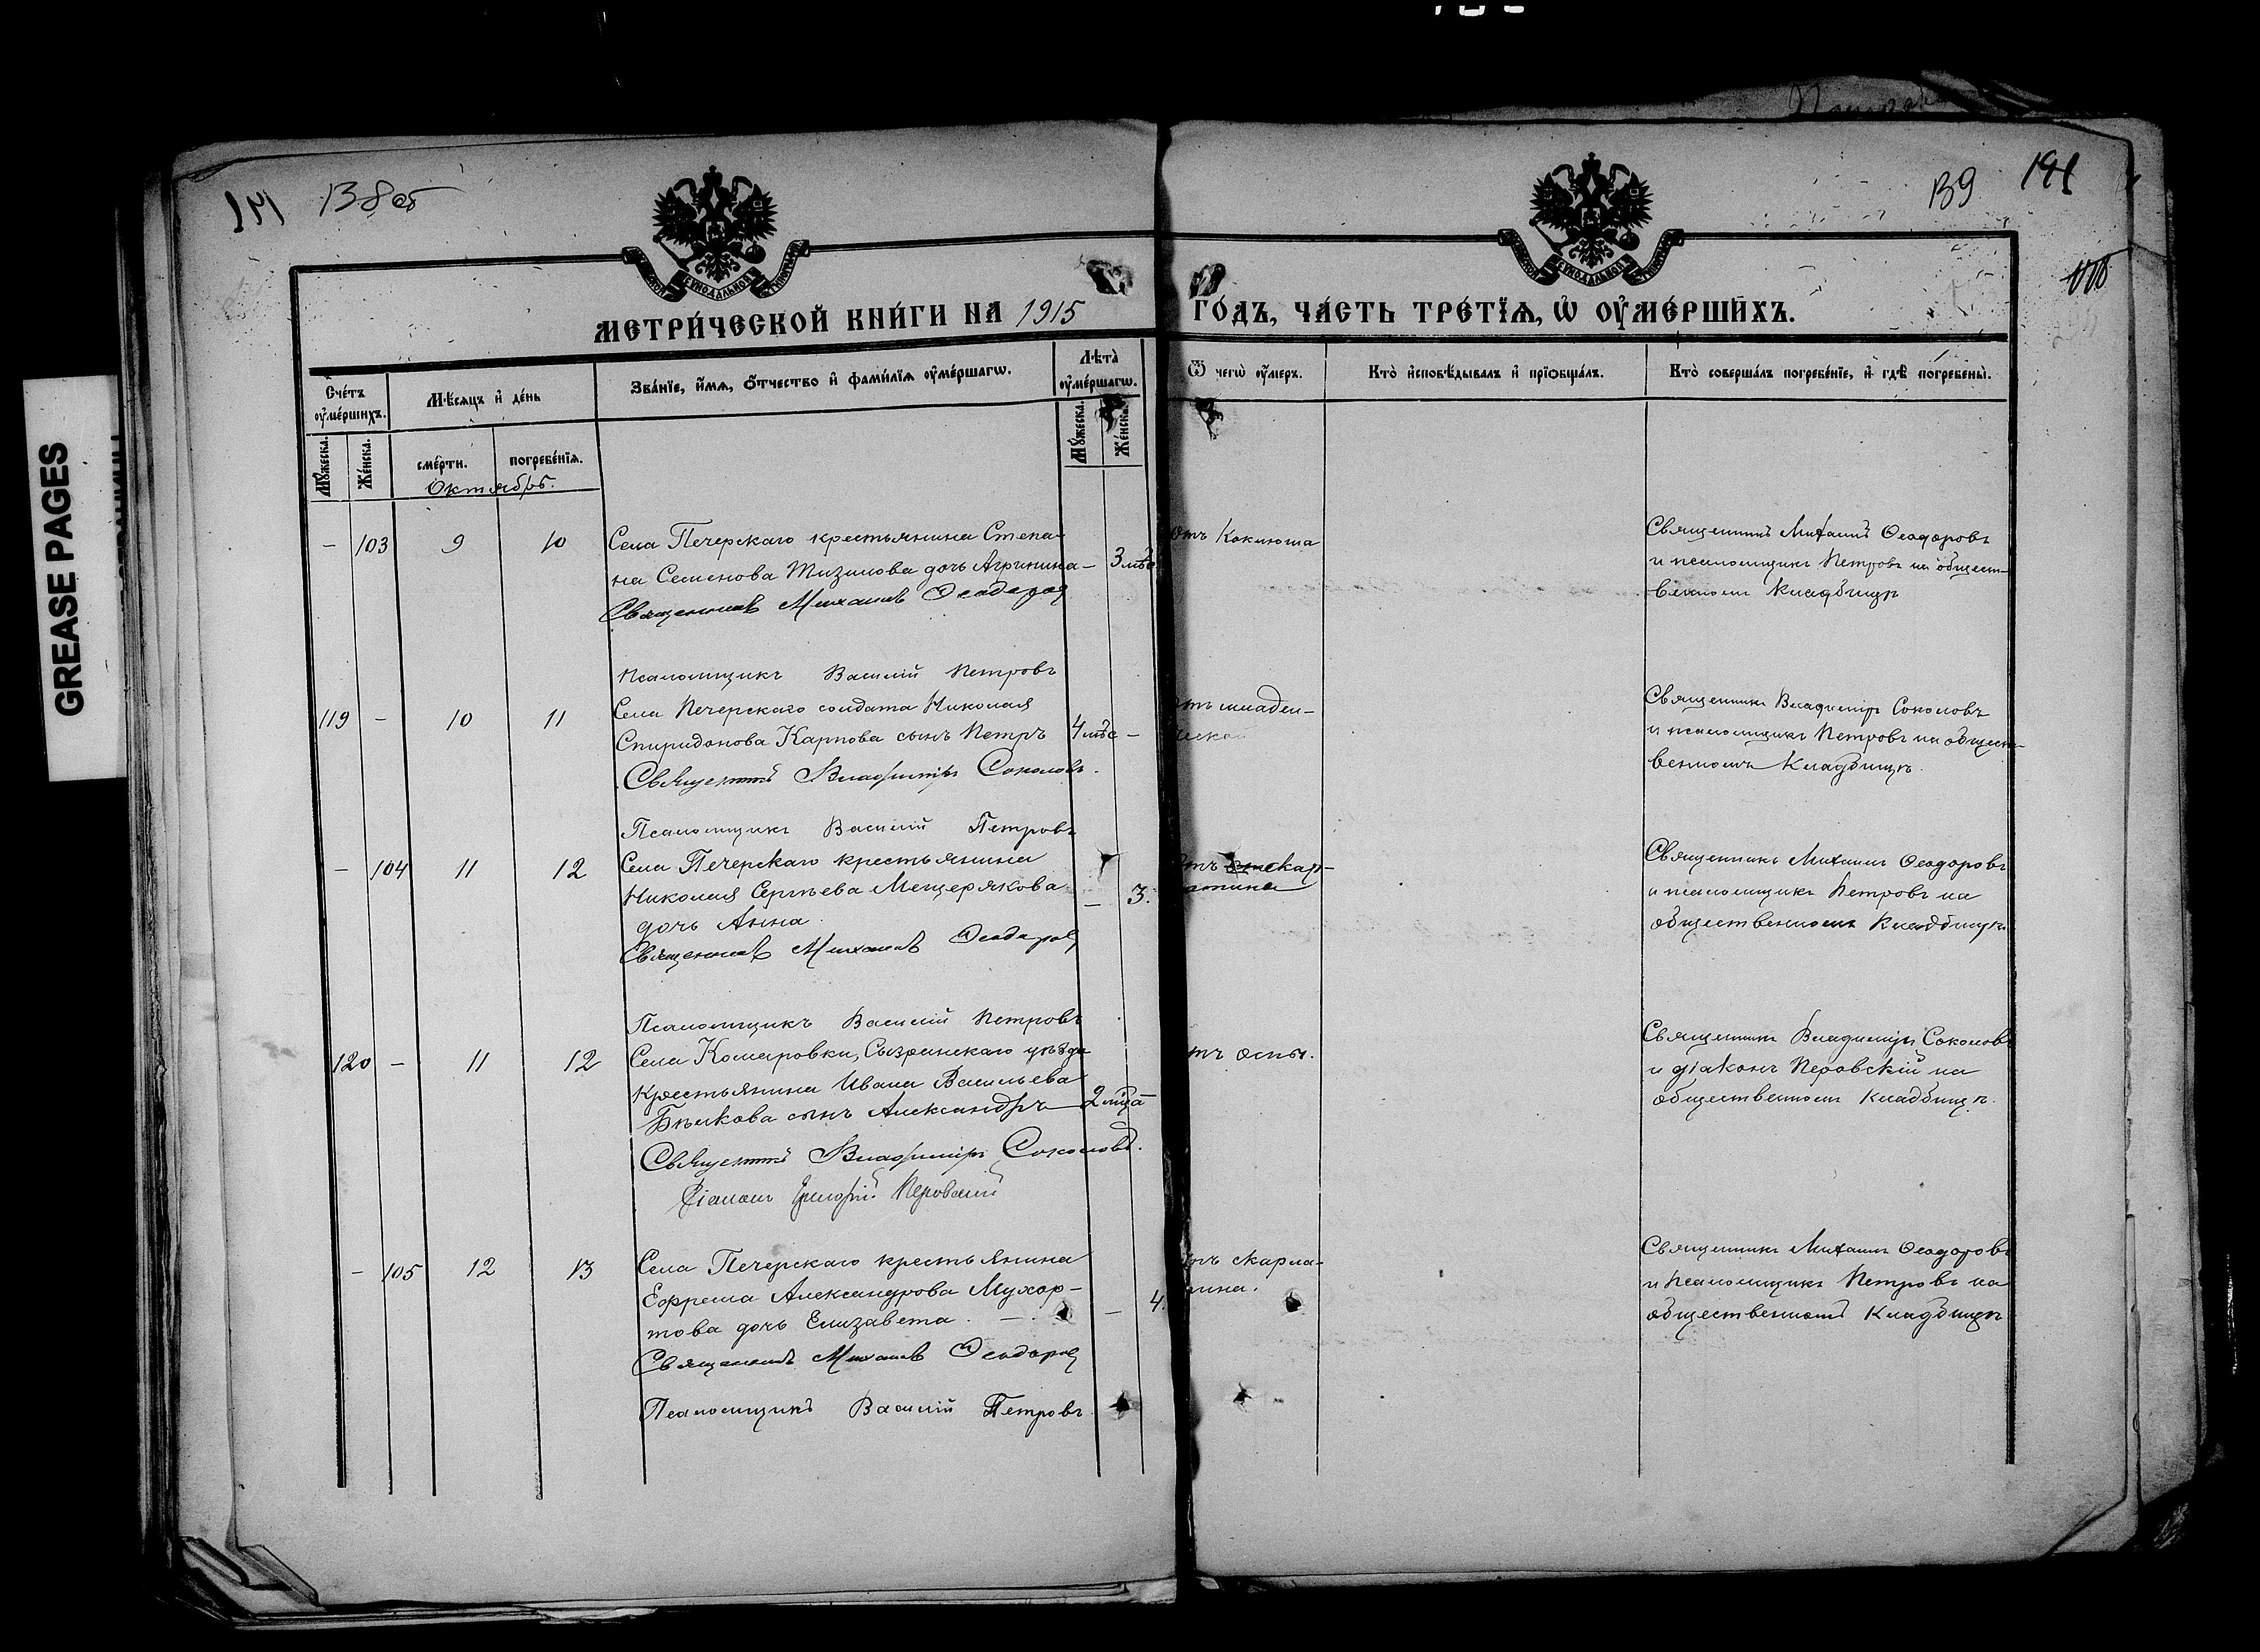 GREASE PAGES
138 об
139
МЕТРИ́ЧЕСКОЙ КНИ́ГИ НА 1915
ГО́ДЪ, ЧА́СТЬ ТРЕ́ТЇѦ, Ѡ҆ ОУ҆МЕ́РШИХЪ.
Сче́тъ оу҆ме́ршихъ.
Мѣ́сѧцъ и҆ де́нь
Зва́нїе, и҆́мѧ, о҆́тчество и҆ фамі́лїѧ оу҆ме́ршагѡ.
Лѣ́та оу҆ме́ршагѡ.
Ѿ чегѡ̀ оу҆́меръ.
Кто̀ и҆сповѣ́дывалъ и҆ прїѡбща́лъ.
Кто̀ соверша́лъ погребе́нїе, и҆ гдѣ̀ погребены̀.
Мꙋ́жеска.
Же́нска.
сме́рти.
погребе́нїѧ.
Мꙋ́жеска.
Же́нска.
Октябрь.
– 103 9 10 Села Печерскаго крестьянина Степа-
на Семенова Тизилова дочь Агрипина – 3 лѣт
Священникъ Михаилъ Ѳеодоровъ
Псаломщикъ Василій Петровъ
отъ Коклюша
Священникъ Михаилъ Ѳеодоровъ
и псаломщикъ Петровъ на общест-
венномъ Кладбищѣ
119 – 10 11 Села Печерскаго солдата Николая
Спиридонова Карпова сынъ Петръ 4 мѣс –
Священникъ Владиміръ Соколовъ.
Псаломщикъ Василій Петровъ
отъ младен-
ческой
Священникъ Владиміръ Соколовъ
и псаломщикъ Петровъ на общест-
венномъ Кладбищѣ.
– 104 11 12 Села Печерскаго крестьянина
Николая Сергѣева Мещерякова – 3.
дочь Анна.
Священникъ Михаилъ Ѳеодоровъ
Псаломщикъ Василій Петровъ
отъ скар-
латина
Священникъ Михаилъ Ѳеодоровъ
и псаломщикъ Петровъ на
общественномъ Кладбищѣ
120 – 11 12 Села Комаровки, Сызранскаго уѣзда
Крестьянина Ивана Васильева
Бѣлкова сынъ Александръ 2 мѣца –
Священникъ Владиміръ Соколовъ.
Діаконъ Григорій Перовскій
отъ оспы.
Священникъ Владиміръ Соколовъ
и діаконъ Перовскій на
общественномъ кладбищѣ.
– 105 12 13 Села Печерскаго крестьянина
Ефрема Александрова Мухор-
това дочь Елизавета. – 4.
Священникъ Михаилъ Ѳеодоровъ
Псаломщикъ Василій Петровъ.
отъ скарла-
тина.
Священникъ Михаилъ Ѳеодоровъ
и Псаломщикъ Петровъ на
общественномъ Кладбищѣ